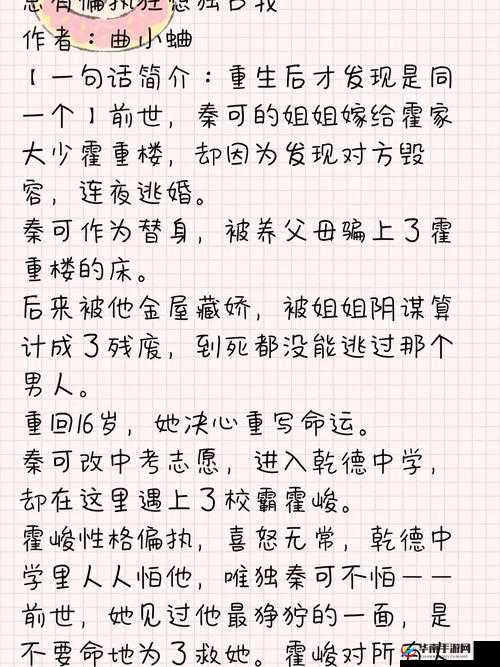 总有偏执狂想独占我
作者：曲小蛐
【一句话简介：重生后才发现是同
一个】前世，秦可的姐姐嫁给霍家
大少霍重楼，却因为发现对方毁
容，连夜逃婚。
秦可作为替身，被养父母骗上了霍
重楼的床。
后来被他金屋藏娇，被姐姐阴谋算
计成了残废，到死都没能逃过那个
男人。
重回16岁，她决心重写命运。
秦可改中考志愿，进入乾德中学，
却在这里遇上了校霸霍峻。
霍峻性格偏执，喜怒无常，乾德中
学里人人怕他，唯独秦可不怕——
前世，她见过他最狰狞的一面，是
不要命地为了救她。霍峻对所有人
华南手游网